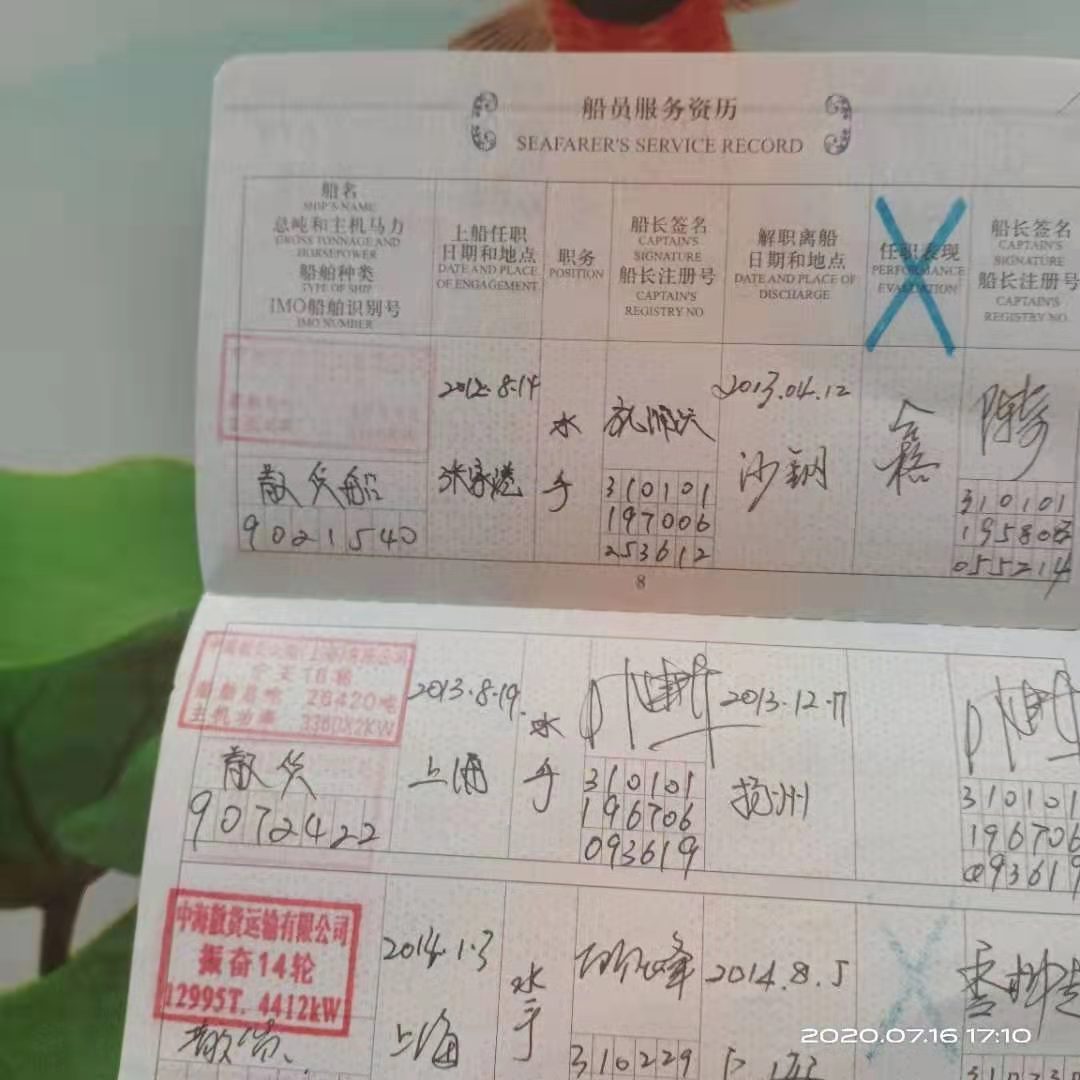 船员服务资历
SEAFARER'S SERVICE RECORD
船名
SHIP'S NAME
总吨和主机马力
GROSS TONNAGE AND
HORSEPOWER
船舶种类
TYPE OF SHIP
IMO船舶识别号
IMO NUMBER
上船任职
日期和地点
DATE AND PLACE
OF ENGAGEMENT
职务
POSITION
船长签名
CAPTAIN'S
SIGNATURE
船长注册号
CAPTAIN'S
REGISTRY NO
解职离船
日期和地点
DATE AND PLACE OF
DISCHARGE
任职表现
PERFORMANCE
EVALUATION
船长签名
CAPTAIN'S
SIGNATURE
船长注册号
CAPTAIN'S
REGISTRY NO
散货船
9021540
2012.8.14
张家港
水
手
310101
197006
253612
2013.04.12
沙钢
310101
055214
8
26420吨
主机功率 3360X2KW
散货
9072422
2013.8.19
上海
水
手
310101
196706
093619
2013.12.17
扬州
310101
196706
093619
中海散货运输有限公司
振奋14轮
12995T. 4412kW
散货
2014.1.3
上海
水
手
310229
2014.8.5
2020.07.16 17:10